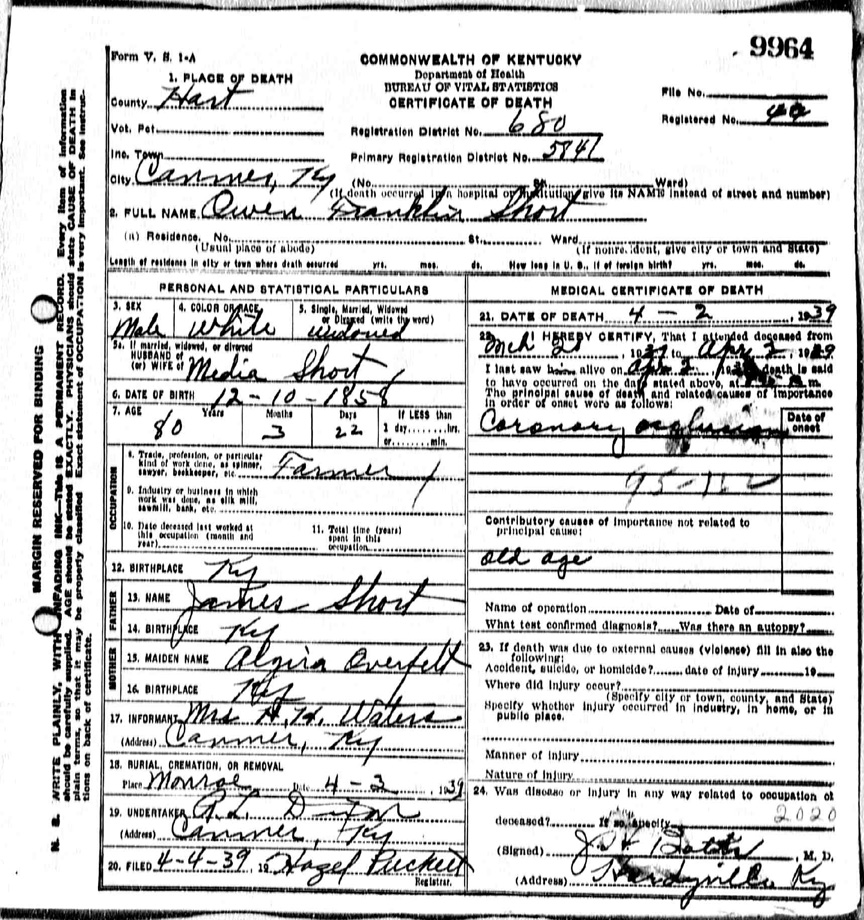 9964
Form V. S. 1-A
COMMONWEALTH OF KENTUCKY
Department of Health
BUREAU OF VITAL STATISTICS
CERTIFICATE OF DEATH
File No.
Registered No.
1. PLACE OF DEATH
County Hart
Vot. Pct.
Registration District No. 680
Inc. Town
Primary Registration District No. 5841
City Canmer, Ky (No. St. Ward)
(If death occurred in a hospital or institution give its NAME instead of street and number)
2. FULL NAME Owen Franklin Short
(a) Residence. No. St. Ward
(Usual place of abode) (If nonresident, give city or town and State)
Length of residence in city or town where death occurred yrs. mos. ds. How long in U. S., if of foreign birth? yrs. mos. ds.
PERSONAL AND STATISTICAL PARTICULARS
3. SEX Male
4. COLOR OR RACE White
5. Single, Married, Widowed or Divorced (write the word) widowed
5a. If married, widowed, or divorced
HUSBAND of
(or) WIFE of Media Short
6. DATE OF BIRTH 12-10-1858
7. AGE 80 Years 3 Months 22 Days If LESS than 1 day, hrs. or min.
OCCUPATION
8. Trade, profession, or particular kind of work done, as spinner, sawyer, bookkeeper, etc. Farmer
9. Industry or business in which work was done, as silk mill, sawmill, bank, etc.
10. Date deceased last worked at this occupation (month and year)
11. Total time (years) spent in this occupation
12. BIRTHPLACE Ky
FATHER
13. NAME James Short
14. BIRTHPLACE Ky
MOTHER
15. MAIDEN NAME Algira Overfelt
16. BIRTHPLACE Ky
17. INFORMANT Mrs H. H. Waters
(Address) Canmer, Ky
18. BURIAL, CREMATION, OR REMOVAL
Place Monroe Date 4-3, 1939
19. UNDERTAKER R. L.
(Address) Canmer, Ky
20. FILED 4-4-39, 19 Hazel Puckett
Registrar.
MEDICAL CERTIFICATE OF DEATH
21. DATE OF DEATH 4 - 2, 1939
22. I HEREBY CERTIFY, That I attended deceased from
Mch 2, 19 to Apr 2, 19
I last saw h alive on Apr 2, 19 death is said
to have occurred on the day stated above, at m.
The principal cause of death and related causes of importance
in order of onset were as follows:
Date of onset
Coronary occlusion
Contributory causes of importance not related to
principal cause:
old age
Name of operation Date of
What test confirmed diagnosis? Was there an autopsy?
23. If death was due to external causes (violence) fill in also the
following:
Accident, suicide, or homicide? date of injury 19
Where did injury occur?
(Specify city or town, county, and State)
Specify whether injury occurred in industry, in home, or in
public place.
Manner of injury
Nature of injury
24. Was disease or injury in any way related to occupation of
2020
deceased? If so, specify
(Signed) M. D.
(Address) Hardyville, Ky
MARGIN RESERVED FOR BINDING
N. B. WRITE PLAINLY, WITH UNFADING INK—THIS IS A PERMANENT RECORD. Every item of information
should be carefully supplied. AGE should be stated EXACTLY. PHYSICIANS should state CAUSE OF DEATH in
plain terms, so that it may be properly classified. Exact statement of OCCUPATION is very important. See instruc-
tions on back of certificate.